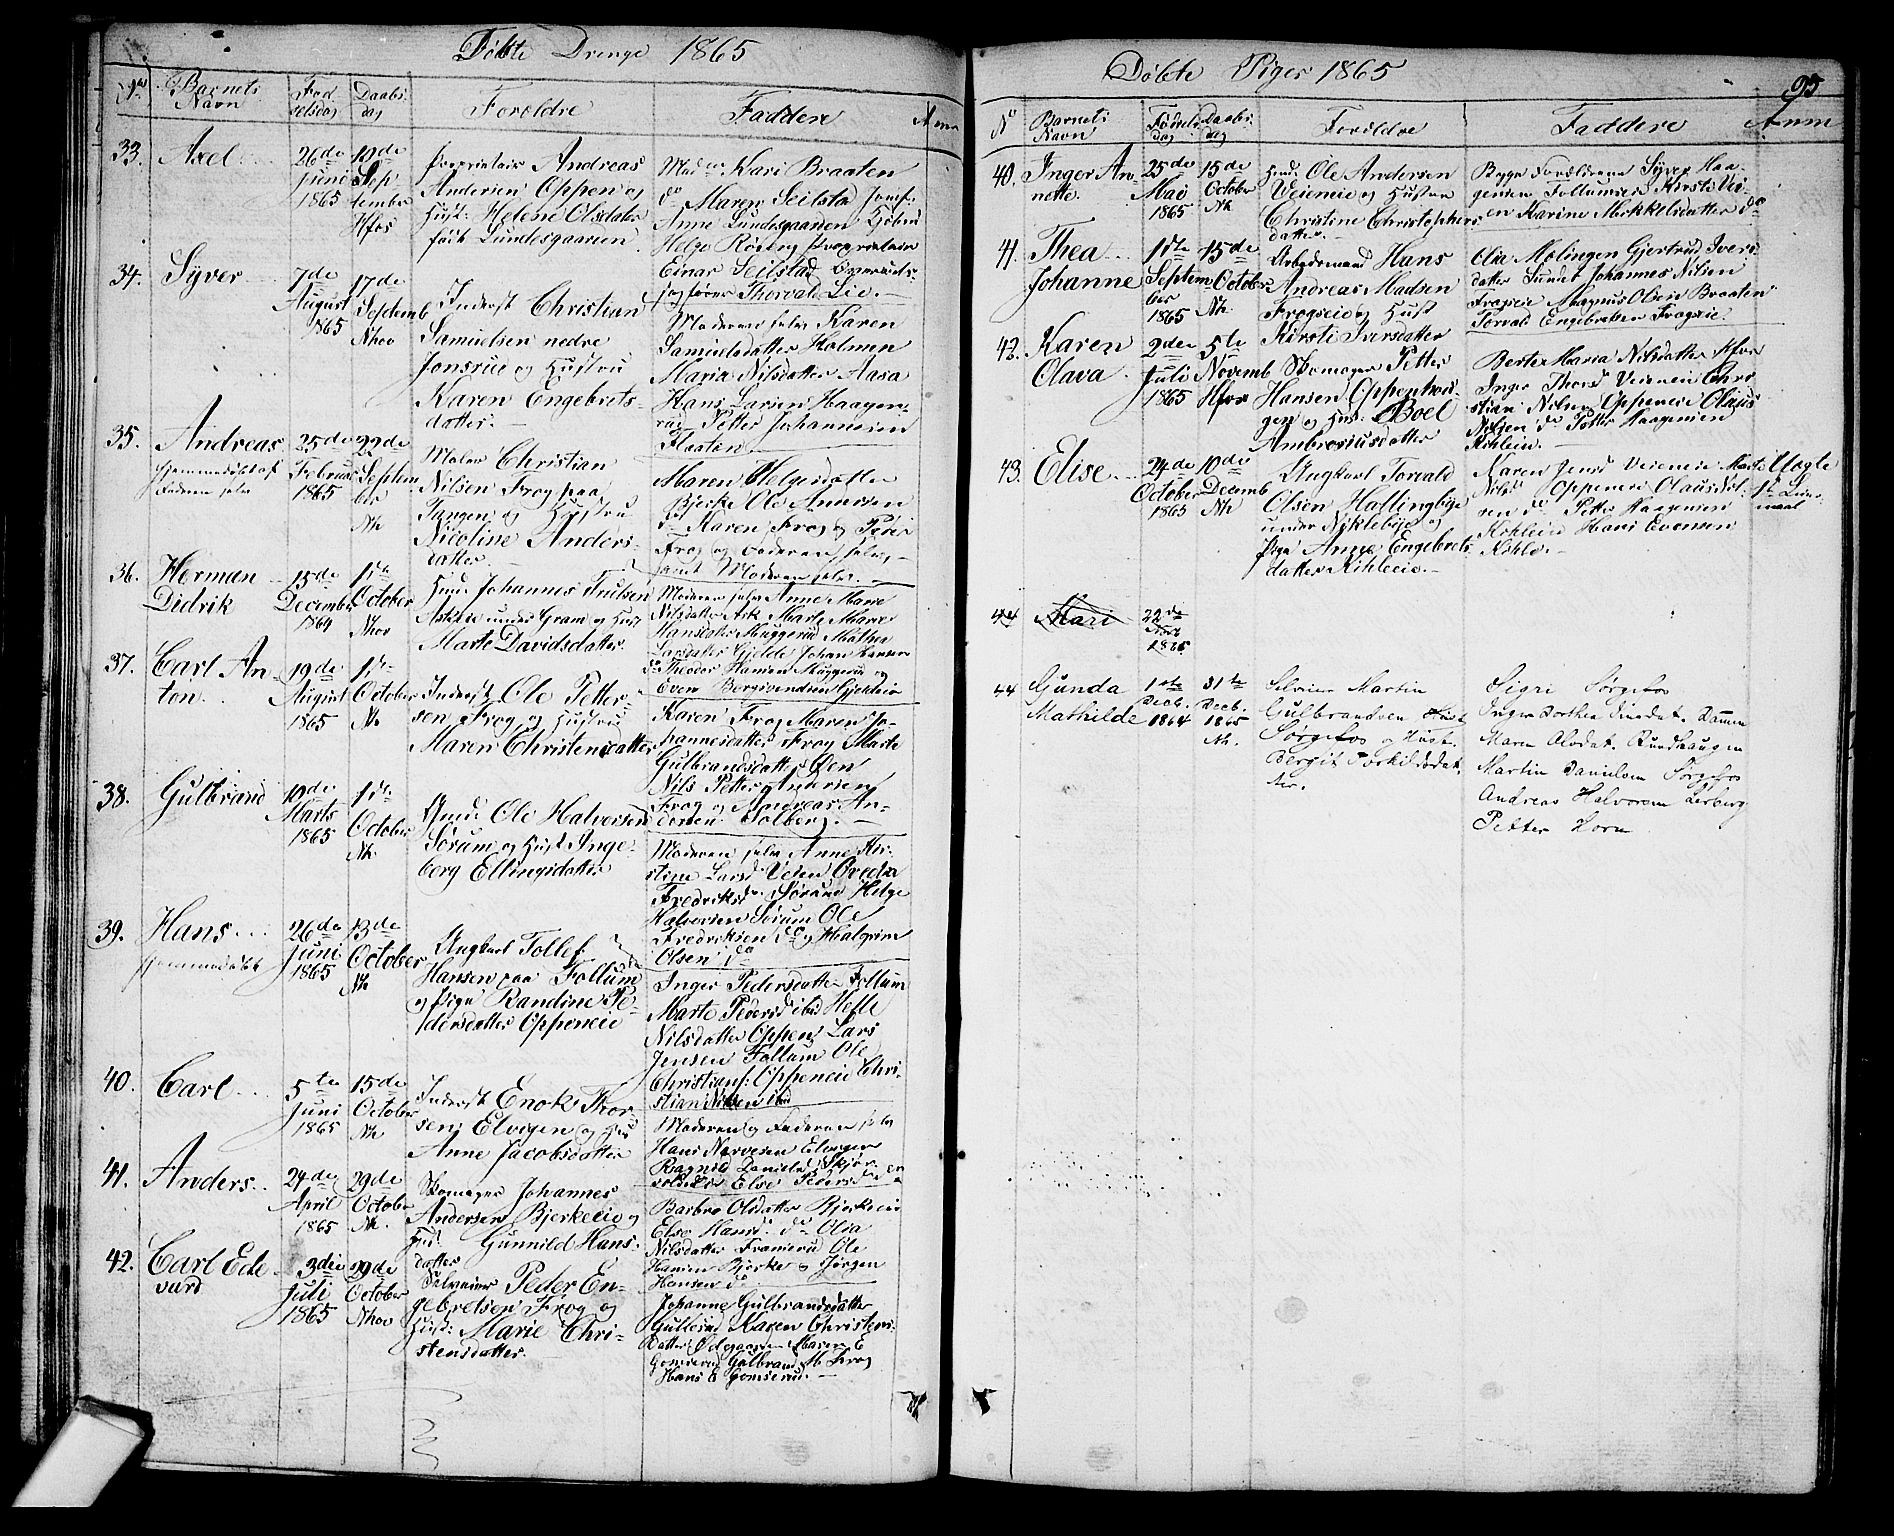 Døbte Drenge 1865
No
Barnets
Navn
Fød
selsdag
Daabs
dag
Foroldre
Faddere
Anm
33. Axel
26de
Juni
1865
10de
Sep
tember
Hfos
Proprietair Andreas
Andersen Oppen og
Hust: Helene Olsdatter
født Lundesgaarden
Madm. Kari Braaten
do Maren Seilstad Jomf.
Anne Lundesgaarden
Helge Proprietair
Einar Seilstad
Thorvald Lie.
34. Syver
7de
August
1865
17de
Septemb
Nhov
Inderst Christian
Samuelsen nedre
Jonsrud og Hustru
Karen Engebrets-
datter.
Moderen selv Karen
Samuelsdatter Holmen
Maria Nilsdatter Aasa
Hans Larsen Haagen-
Petter Johannesen
Flaaten
35. Andreas
hjemmedøbt af
Faderen selv
25de
Februar
1865
22de
Septem
ber
Nh
Maler Christian
Nilsen Frog paa
Tangen og Hustru
Nicoline Anders-
datter
Maren Helgesdatter
Bjerke Ole Andersen
do Karen Frog og Peder
Frog og Faderen selv,
samt Moderen selv.
36. Herman
Didrik
15de
December
1864
1ste
October
Nhov
Huusm. Johannes
Askeie under Gram og Hust
Marte Davidsdatter
Moderen selv Anne Marie
Nilsdatter Ask Marte Marie
Hansdatter Muggerud Mathea
Larsdatter Gjelde Johan Hansen
do Theodor Hansen Muggerud og
Even
37. Carl An-
ton
19de
August
1865
1ste
October
Nh
Inderst Ole Petter-
sen Frog og Hustru
Maren Christensdatter
Karen Frog Maren Jo-
hannesdatter Frog Marte
Gulbrandsdatter Oen
Nils Petter Andersen
Frog og Andreas An-
dersen Solberg.
38. Gulbrand
19de
Marts
1865
1ste
October
Nh.
Huusm. Ole Halvorsen
Sørum og Hust Inge-
berg Ellingsdatter
Moderen selv Anne Kir-
stine Larsd Veien
Fredriksd. Sørum Helge
Halvorsen Sørum Ole
Fredriksen do og Halgrim
Olsen do
39. Hans
hjemmedøbt
26de
Juni
1865
13de
October
Nh
Ungkarl Tollef
Hansen paa Follum
og Pige Randine Pe-
dersdatter Oppeneie
Inger Pedersdatter Follum
Marte Pedersd ibid
Nilsdatter Oppen Lars
Jensen Follum Ole
Christians: Oppeneie Chri-
stian Nilsen ibid
40. Carl
5te
Juni
1865
15de
October
Nh
Inderst Enok Thor-
sen Elvigen og Hus
Anne Jacobsdatter
Moderen og Faderen selv
Hans Narvesen Elvigen
Ragnild Danielsd
Else Pedersd
41. Anders
24de
April
1865
29de
October
Nh.
Skomager Johannes
Andersen Bjerkeeie og
Hus. Gunnild Hans-
datter
Barbro Olsdatter Bjerkeeie
Else Hansd. do Olia
Nilsdatter Framerud Ole
Hansen Bjerke og Jørgen
Hansen do
42. Carl Ed-
vard
3die
Juli
1865
29de
October
Nhov
Selveier Peder En-
gebretsen Frog og
Hust: Marie Chri-
stensdatter
Johanne Gulbrandsdatter
Gullerud Karen Christens-
datter Ødegaarden Maren E
Gomserud Gulbrand M Frog
Hans E Gomserud.
Døbte Piger 1865
95
No
Barnets
Navn
Fødsels
Dag
Daabs
dag
Foroldre
Faddere
Anm
40. Inger An-
nette.
25de
Mai
1865
15de
October
Nh
Huusm. Ole Andersen
Veieneie og Hustru
Christine Christophers-
datter
Begge Foroldrene Syver Haa-
gensen Follumeie Kirsti Vei-
en Karine Mikkelsdatter do
41. Thea
Johanne
1ste
Septem
ber
1865
15de
October
Nh.
Arbeidsmand Hans
Andreas Madsen
Frogseie og Hust
Kirsti Iversdatter
Olia Molingen Gjertrud Ivers-
datter Sundet Johannes Nilsen
Frogseie Magnus Olsen Braaten
Torvald Engebretsen Frogseie.
42. Karen
Olava
2den
Juli
1865
5te
Novemb
Hfos
Skomager Petter
Hansen Oppenhou-
gen og Hus: Boel
Ambrosiusdatter
Berte Maria Nilsdatter Hfos
Inger Thorsd Veieneie Chri
stian Nilsen Oppeneie Olaus
Nilsen do Petter Haagensen
Kihleie.
43. Elise
24de
October
1865
10de
Decemb
Nh
Ungkarl Torvald
Olsen Hallingbye
under Niklebye og
Pige Anne Engebrets-
datter Kihleeie.
Maren Jensd Veieneie Marte
Nilsd Oppeneie Olaus Nil-
sen do Petter Haagensen
Kihleeie Hans Evensen
Kihle.
Uægte
1ste Leier-
maal
44 Mari
22de
Novb
1865
44 Gunda
Mathilde
1ste
Decb.
1864
31te
Decb.
1865
Nh.
Selveier Martin
Gulbrandsen Hust
Sørgefos og Hust.
Bergit Torkildsdat-
ter.
Sigri Sørgefos
Inger Dorthea Dammen
Maren Olsdat. Rundhaugen
Martin Danielsen Sørgefos
Andreas Halvorsen Lerberg
Petter Horn